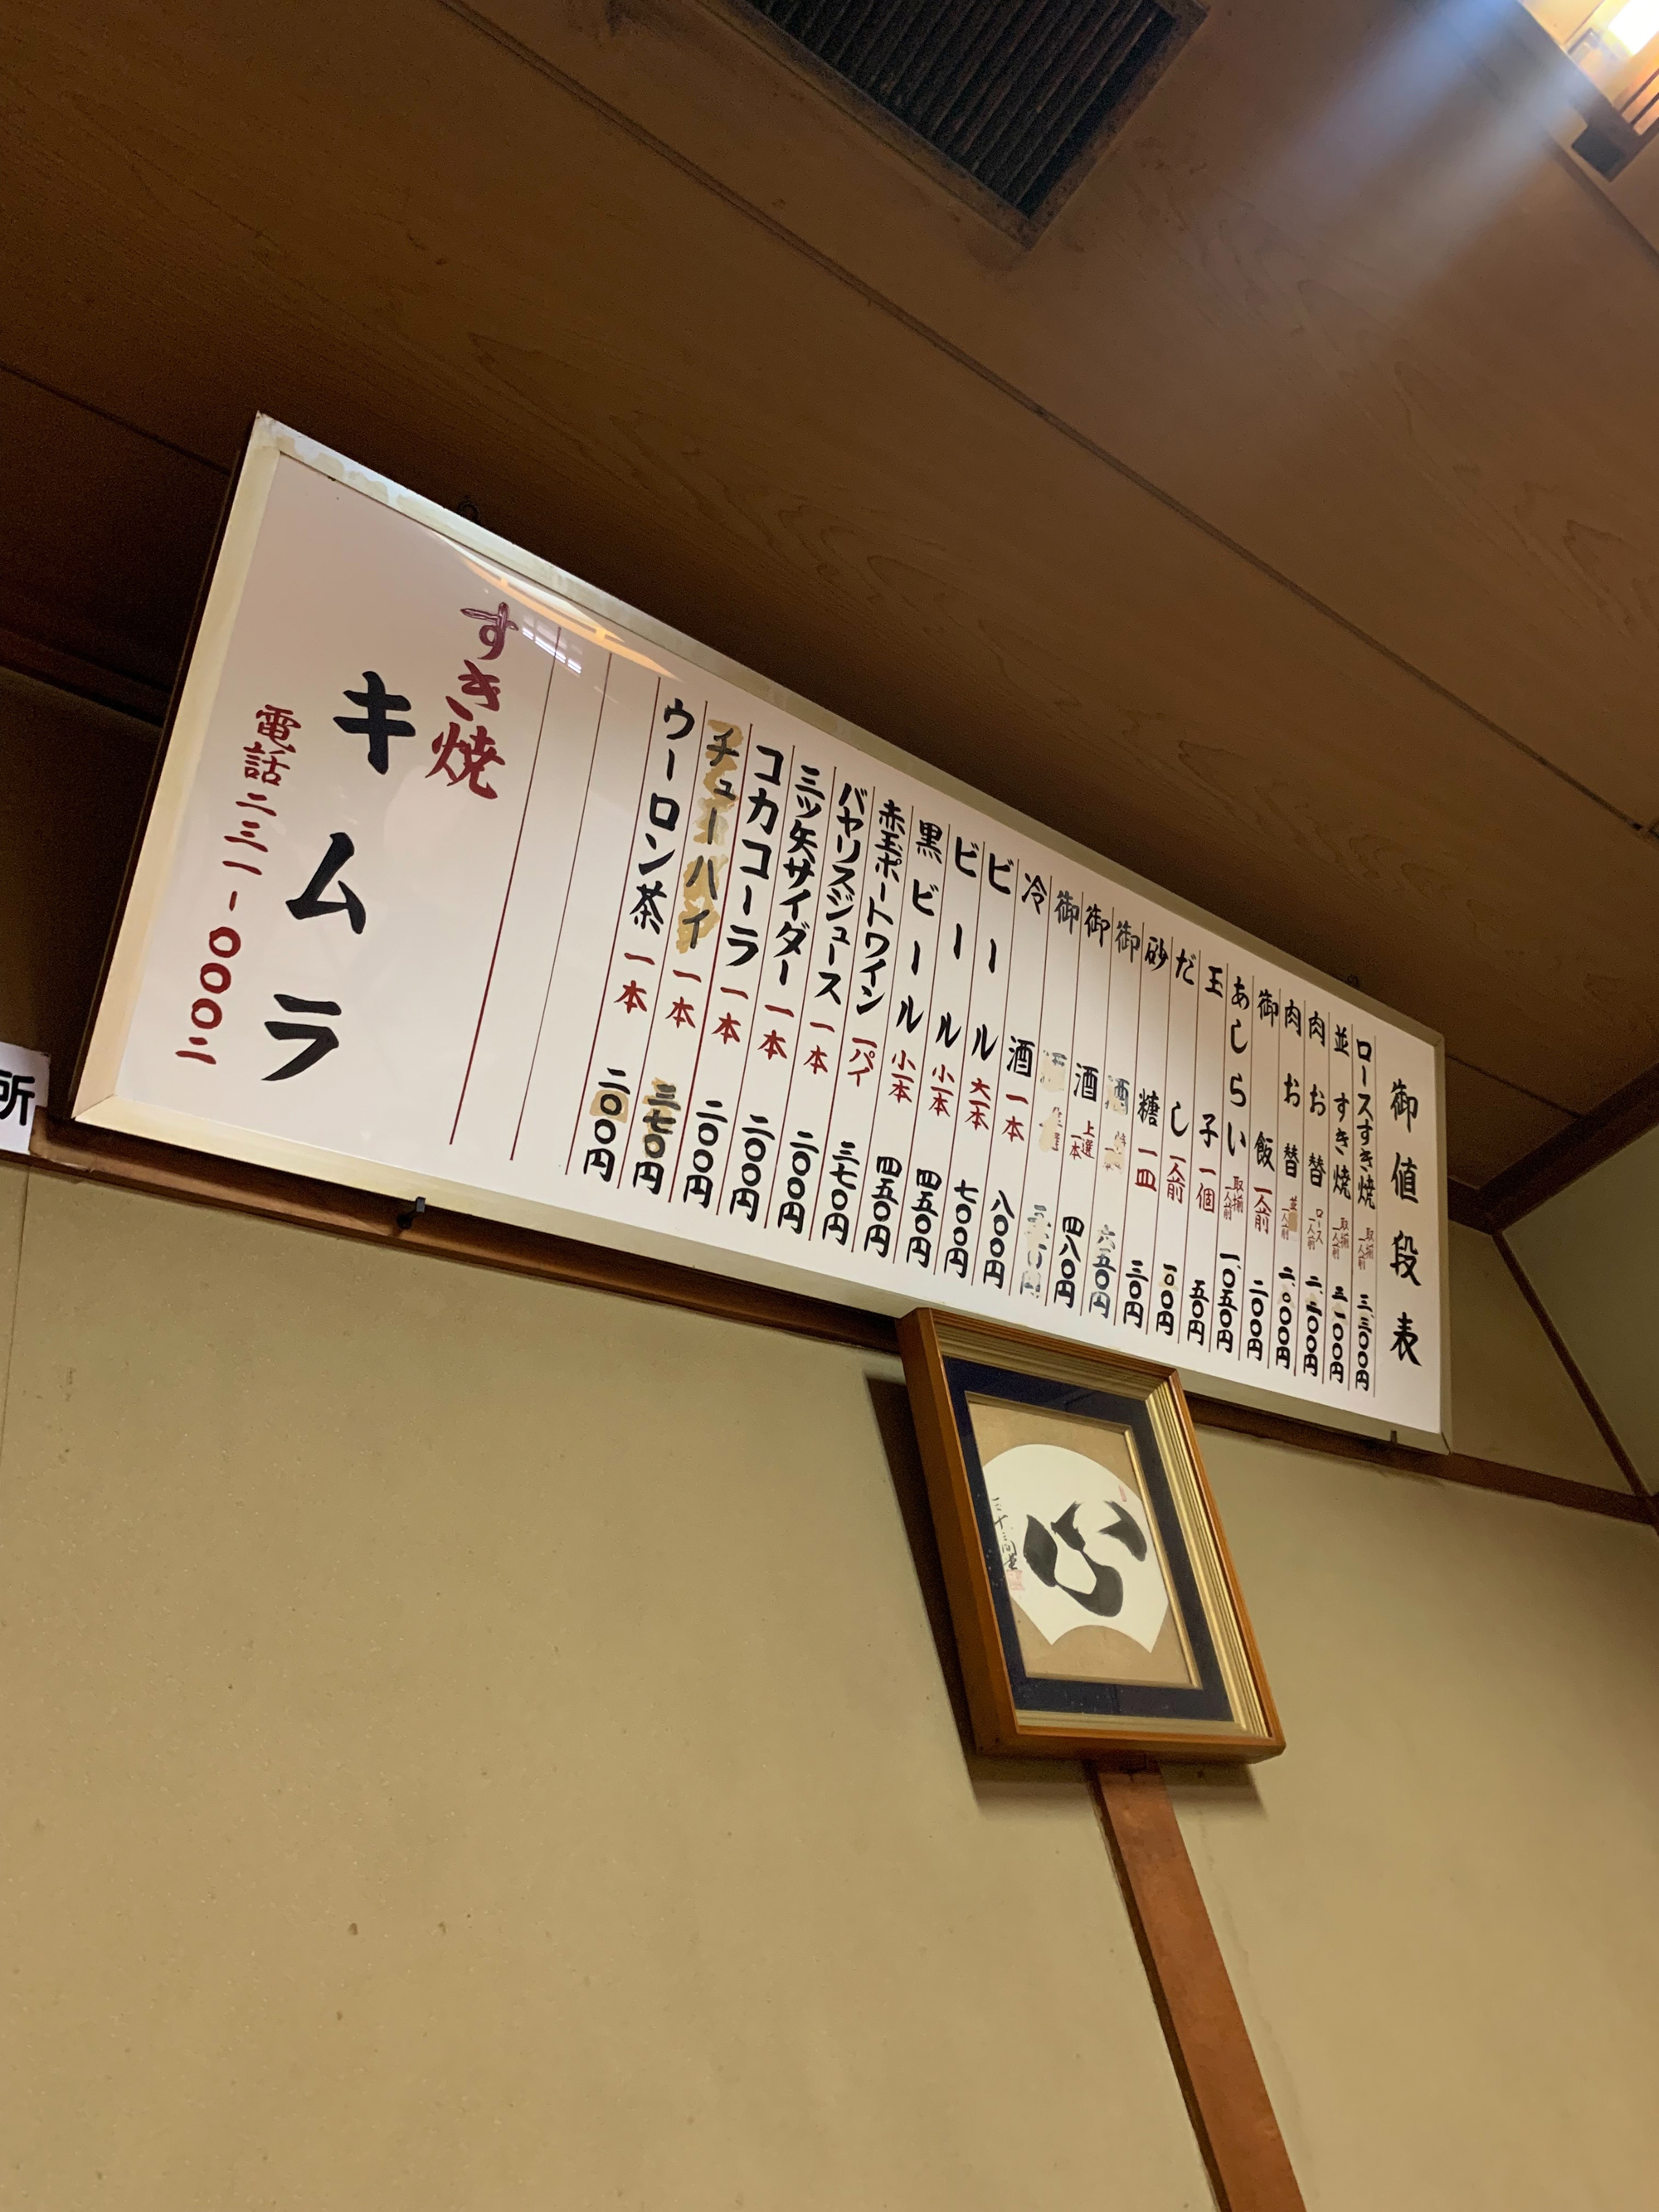 御値段表
ロースすき焼 取揃一人前 三、三〇〇円
並すき焼 取揃一人前 三、一〇〇円
肉お替 ロース一人前 二、二〇〇円
肉お替 並一人前 二、〇〇〇円
御飯 一人前 二〇〇円
あしらい 取揃一人前 一、〇五〇円
玉子 一個 五〇円
だし 一人前 一〇〇円
砂糖 一皿 三〇円
御酒 六五〇円
御酒 上選一本 四八〇円
御
冷酒 一本 八〇〇円
ビール 大一本 七〇〇円
ビール 小一本 四五〇円
黒ビール 小一本 四五〇円
赤玉ポートワイン 一パイ 三七〇円
バヤリスジュース 一本 二〇〇円
三ツ矢サイダー 一本 二〇〇円
コカコーラ 一本 二〇〇円
チューハイ 一本 三七〇円
ウーロン茶 一本 二〇〇円
すき焼
キムラ
電話二三一-〇〇〇二
心
所